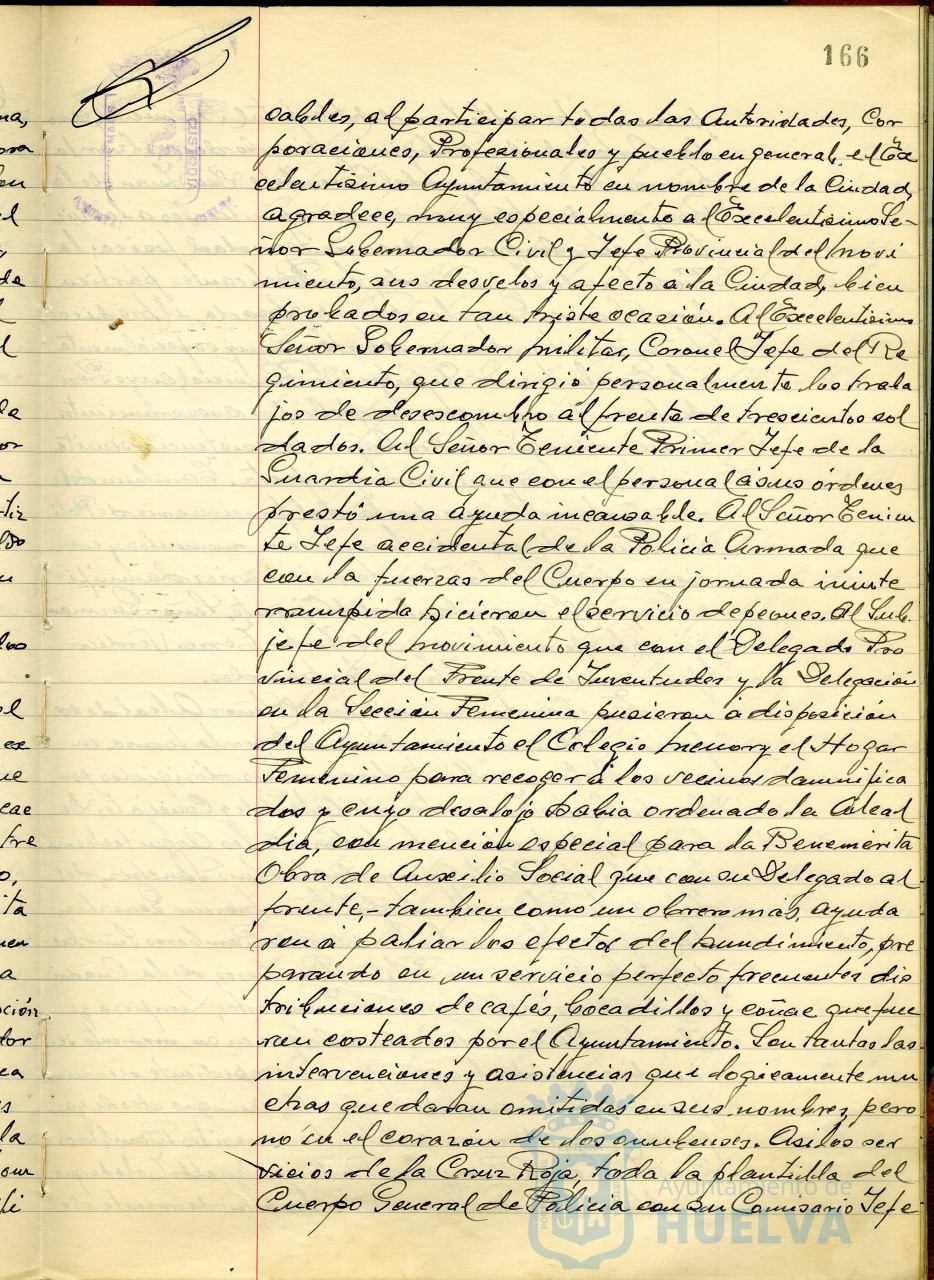 166
cables, al participar todas las Autoridades, Cor
poraciones, Profesionales y pueblo en general, el Ex
celentísimo Ayuntamiento en nombre de la Ciudad,
agradece, muy especialmente al Excelentísimo Se-
ñor Gobernador Civil y Jefe Provincial del movi
miento, sus desvelos y afecto a la Ciudad, bien
probados en tan triste ocasión. Al Excelentísimo
Señor Gobernador militar, Coronel Jefe del Re
gimiento, que dirigió personalmente los traba
jos de desescombro al frente de trescientos sol
dados. Al Señor Teniente Primer Jefe de la
Guardia Civil que con el personal a sus órdenes
prestó una ayuda incansable. Al Señor Tenien
te Jefe accidental de la Policía Armada que
con la fuerzas del Cuerpo en jornada ininte
rrumpida hicieron el servicio de peones. Al Sub-
jefe del movimiento que con el Delegado Pro
vincial del Frente de Juventudes y la Delegación
en la Sección Femenina pusieron a disposición
del Ayuntamiento el Colegio menor y el Hogar
Femenino para recoger á los vecinos damnifica
dos y cuyo desalojo habia ordenado la Alcal
dia, con mención especial para la Benemérita
Obra de Auxilio Social que con su Delegado al
frente, - tambien como un obrero más, ayuda
ron á paliar los efectos del hundimiento, pre
parando en un servicio perfecto frecuentes dis
tribuciones de cafés, bocadillos y coñac que fue
ron costeados por el Ayuntamiento. Son tantas las
intervenciones y asistencias que logicamente mu
chas quedaran omitidas en sus nombres, pero
no en el corazón de los onubenses. Asi los ser
vicios de la Cruz Roja, toda la plantilla del
Cuerpo General de Policia con su Comisario Jefe
Ayuntamiento de
HUELVA